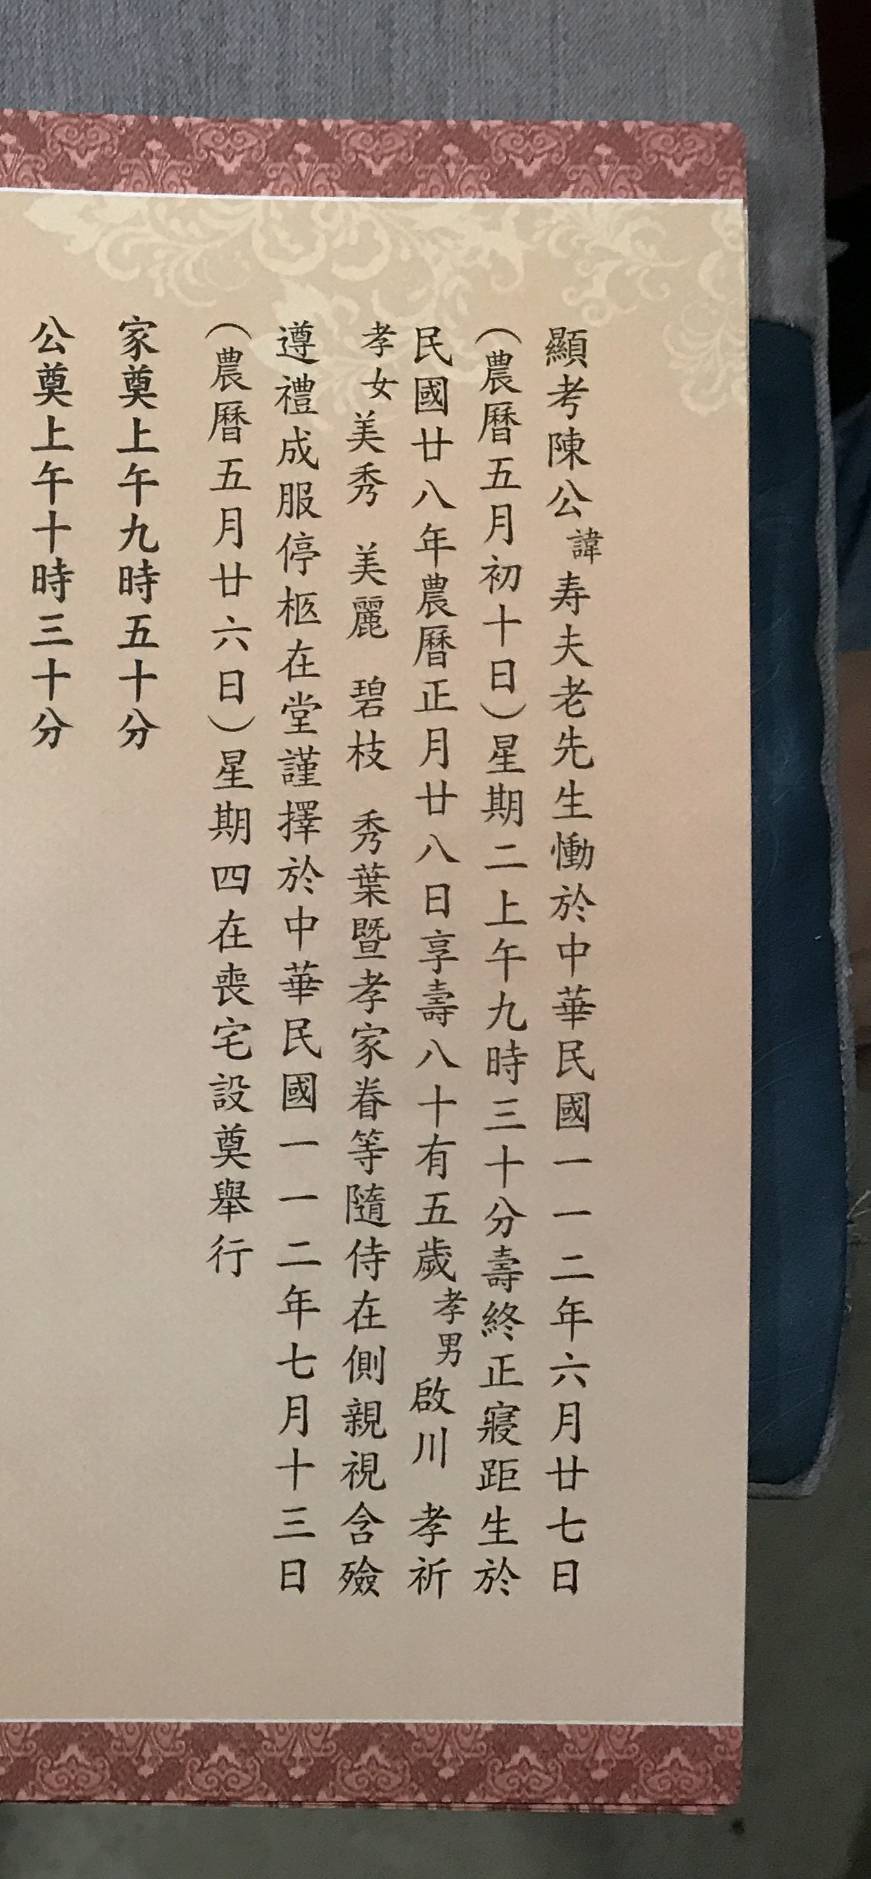 顯考陳公諱寿夫老先生慟於中華民國一一二年六月廿七日
（農曆五月初十日）星期二上午九時三十分壽終正寢距生於
民國廿八年農曆正月廿八日享壽八十有五歲孝男啟川　孝祈
孝女美秀　美麗　碧枝　秀葉暨孝家眷等隨侍在側親視含殮
遵禮成服停柩在堂謹擇於中華民國一一二年七月十三日
（農曆五月廿六日）星期四在喪宅設奠舉行
家奠上午九時五十分
公奠上午十時三十分